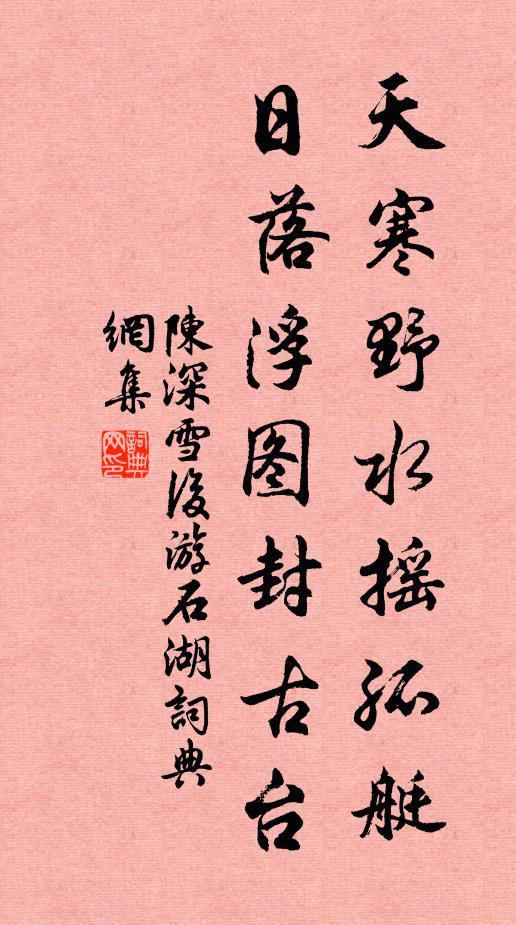 天寒野水摇孤艇
日落浮图封古台
陳深雪後游石湖詞典
網集
詞典网印